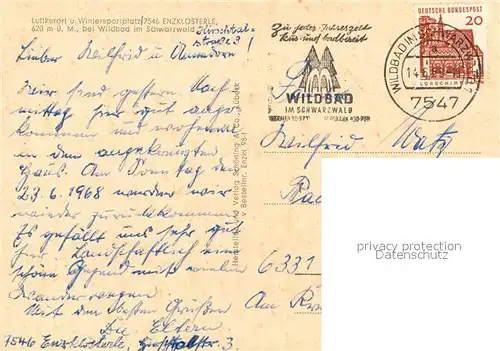 Luftkurort u. Wintersportplatz/7546 ENZKLOSTERLE,
620 m ü. M., bei Wildbad im Schwarzwald Hirschtal-
straße 3!
Lieber Wilfried u. Annedorn
Wir sind gestern Nach
mittag hier gut ange
kommen und wohnen
in dem angekreuzten
Haus. Am Sonntag den
23.6.1968 werden wir
wieder zurückkommen
Es gefällt uns sehr gut
hier. Landschaftlich eine
schöne Gegend mit vielen
Wanderwegen.
Mit den besten Grüßen
Die Eltern.
7546 Enzklösterle, Hirschtalstr. 3
Herstellung und Verlag Schöning & Co., Lübeck
Bestellnr. Enzkl 981
Zu jeder Jahreszeit
kur- und badbereit
WILDBAD
IM SCHWARZWALD
WILDBAD IM SCHWARZWALD
7547
DEUTSCHE BUNDESPOST
20
LORSCH/HESSEN
Wilfried Watz
6331
Am
privacy protection
Datenschutz